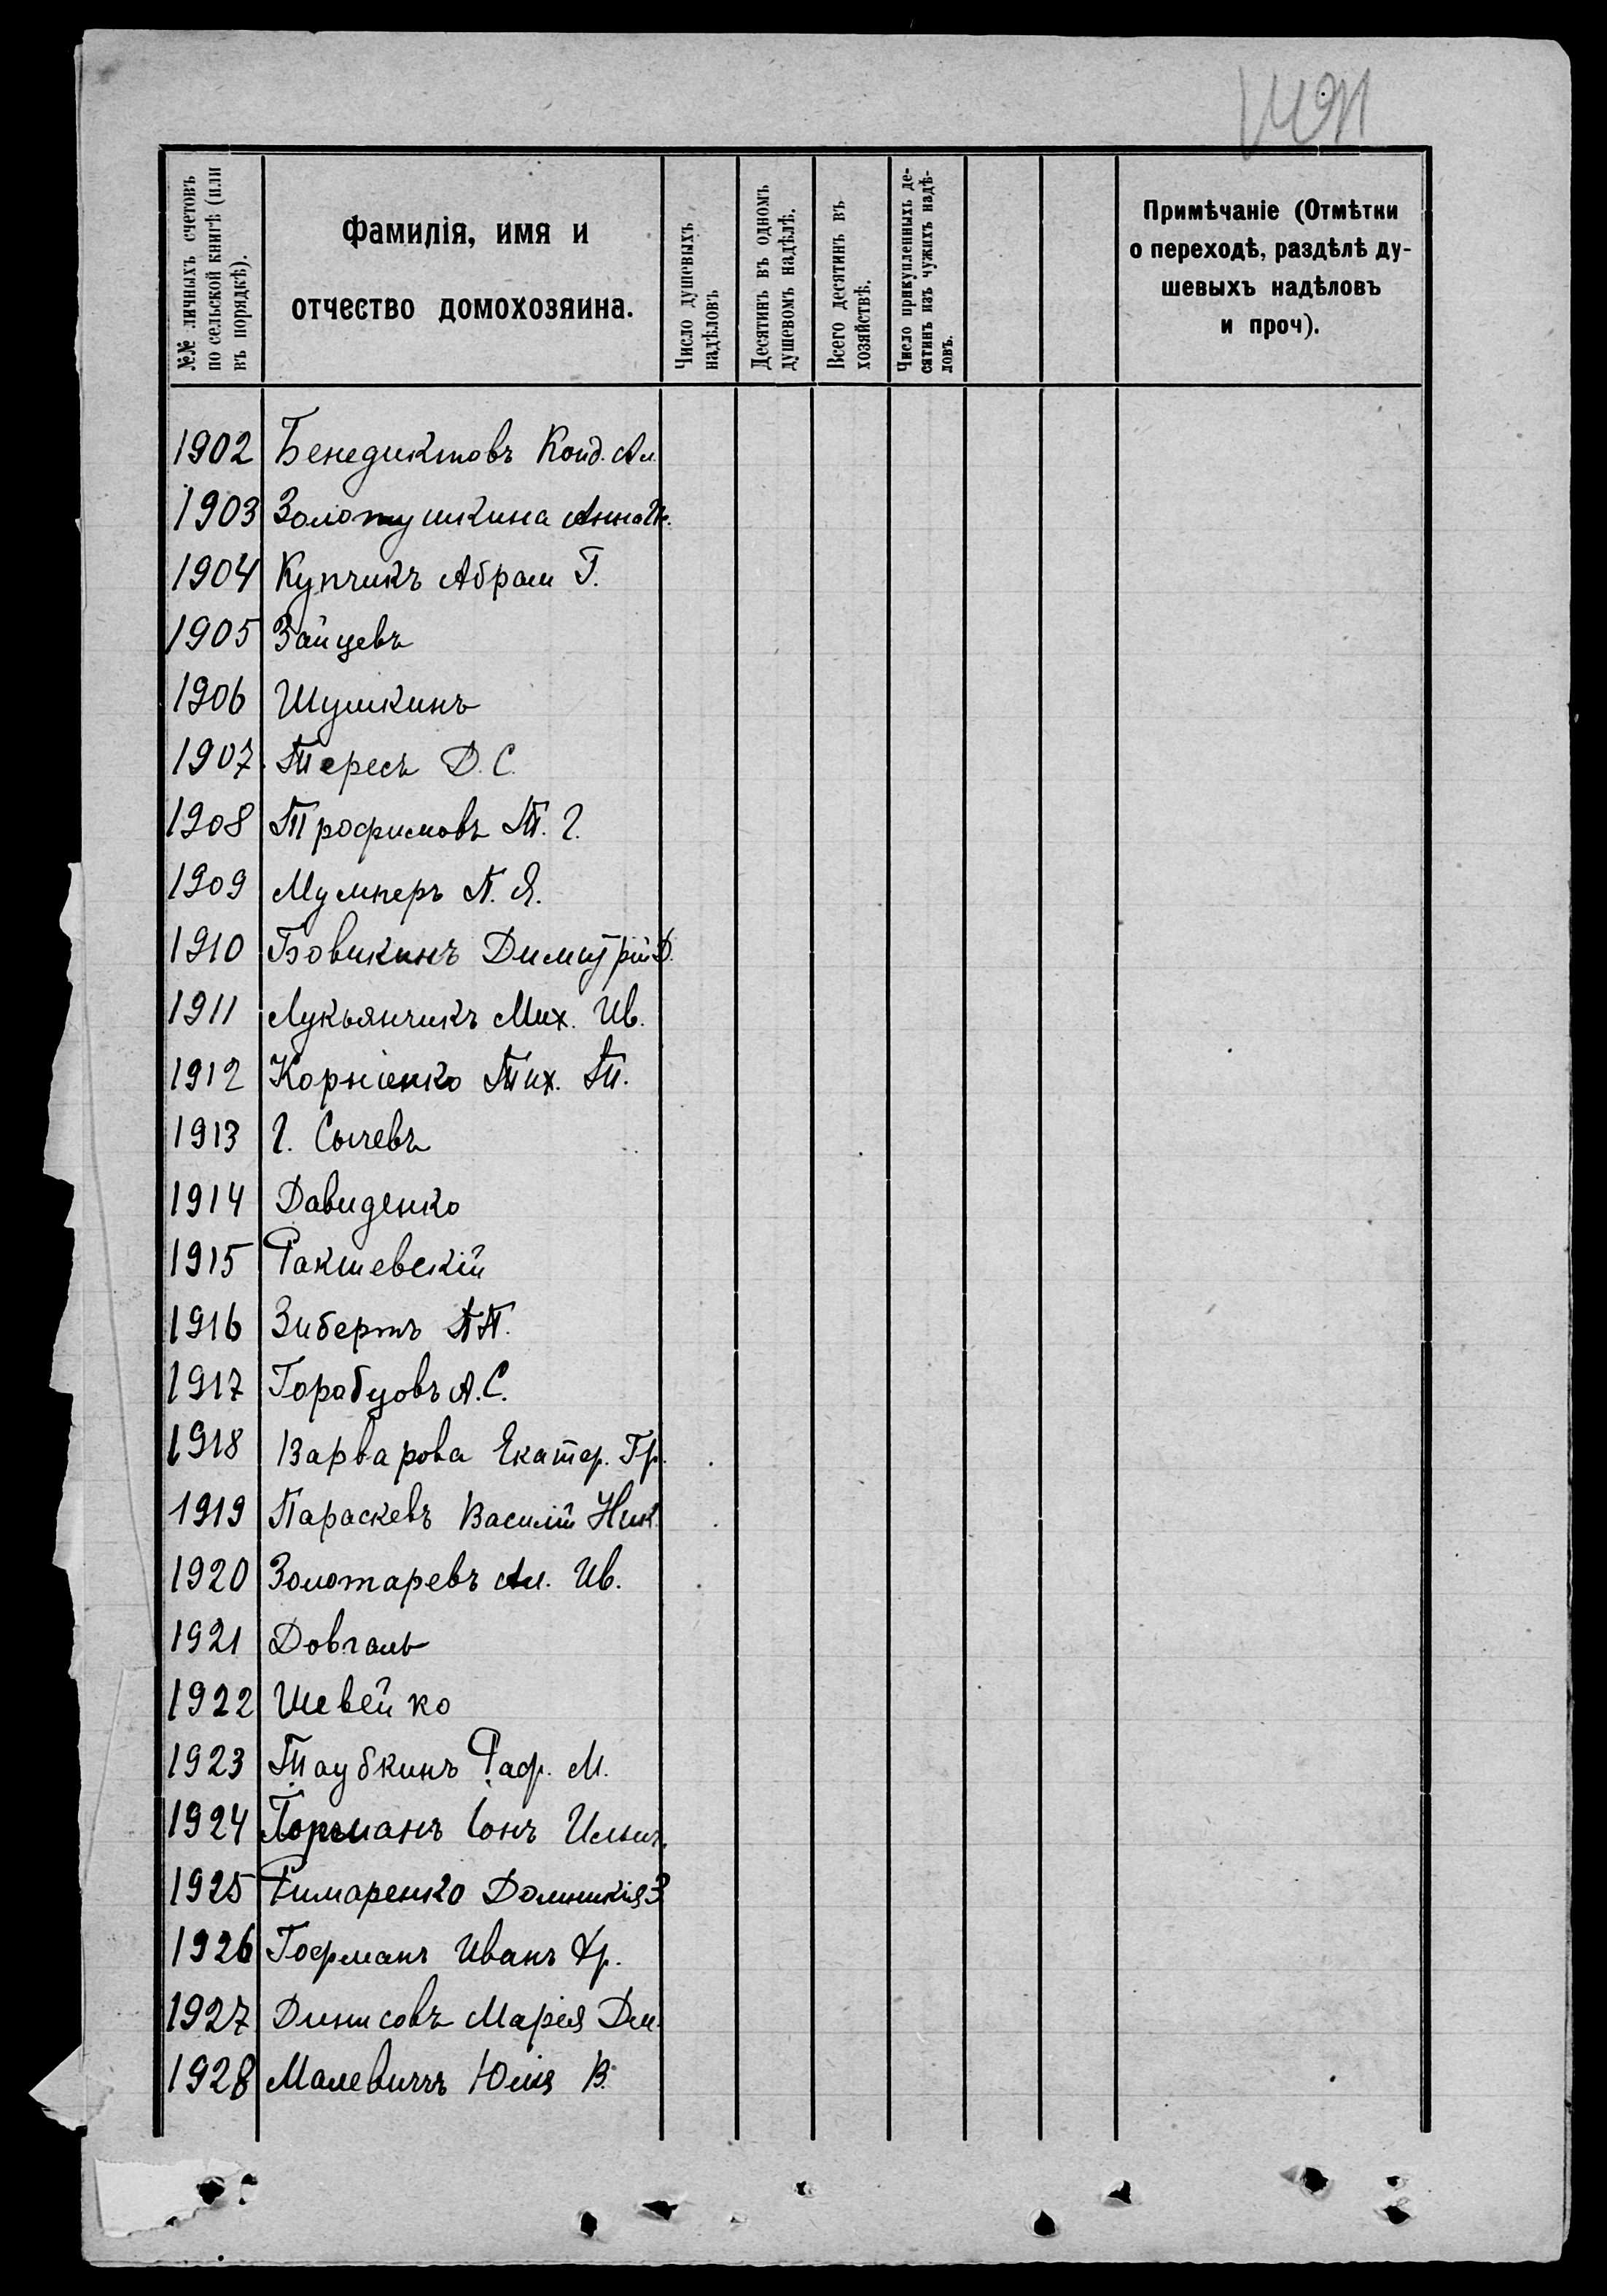 №№ личныхъ счетовъ
по сельской книгѣ (или
въ порядкѣ).
Фамилія, имя и
отчество домохозяина.
Число душевыхъ
надѣловъ
Десятинъ въ одномъ
душевомъ надѣлѣ.
Всего десятинъ въ
хозяйствѣ.
Число прикупленныхъ де-
сятинъ изъ чужихъ надѣ-
ловъ.
Примѣчаніе (Отмѣтки
о переходѣ, раздѣлѣ ду-
шевыхъ надѣловъ
и проч).
1902 Бенедиктовъ Конд. Ал.
1903 Золотушкина Анна
1904 Купчикъ Абрам Г.
1905 Зайцевъ
1906 Шушкинъ
1907 Тересъ Д. С.
1908 Трофимовъ Т. Г.
1909 Мумперъ П. Я.
1910 Бовикинъ Димитрій Д.
1911 Лукьянчикъ Мих. Ив.
1912 Корніенко Тих. Т.
1913 Г. Сычевъ
1914 Давиденко
1915 Ракшевскій
1916 Зибертъ П.
1917 Горобцовъ А. С.
1918 Варварова Екатер. Гр.
1919 Параскевъ Василій Ник.
1920 Золотаревъ Ал. Ив.
1921 Довгаль
1922 Шевейко
1923 Таубкинъ Раф. М.
1924 Іонъ Ильич.
1925 Римаренко Домникія З
1926 Гофманъ Иванъ Хр.
1927 Динисовъ Марія Дм.
1928 Малевичъ Юлія В.